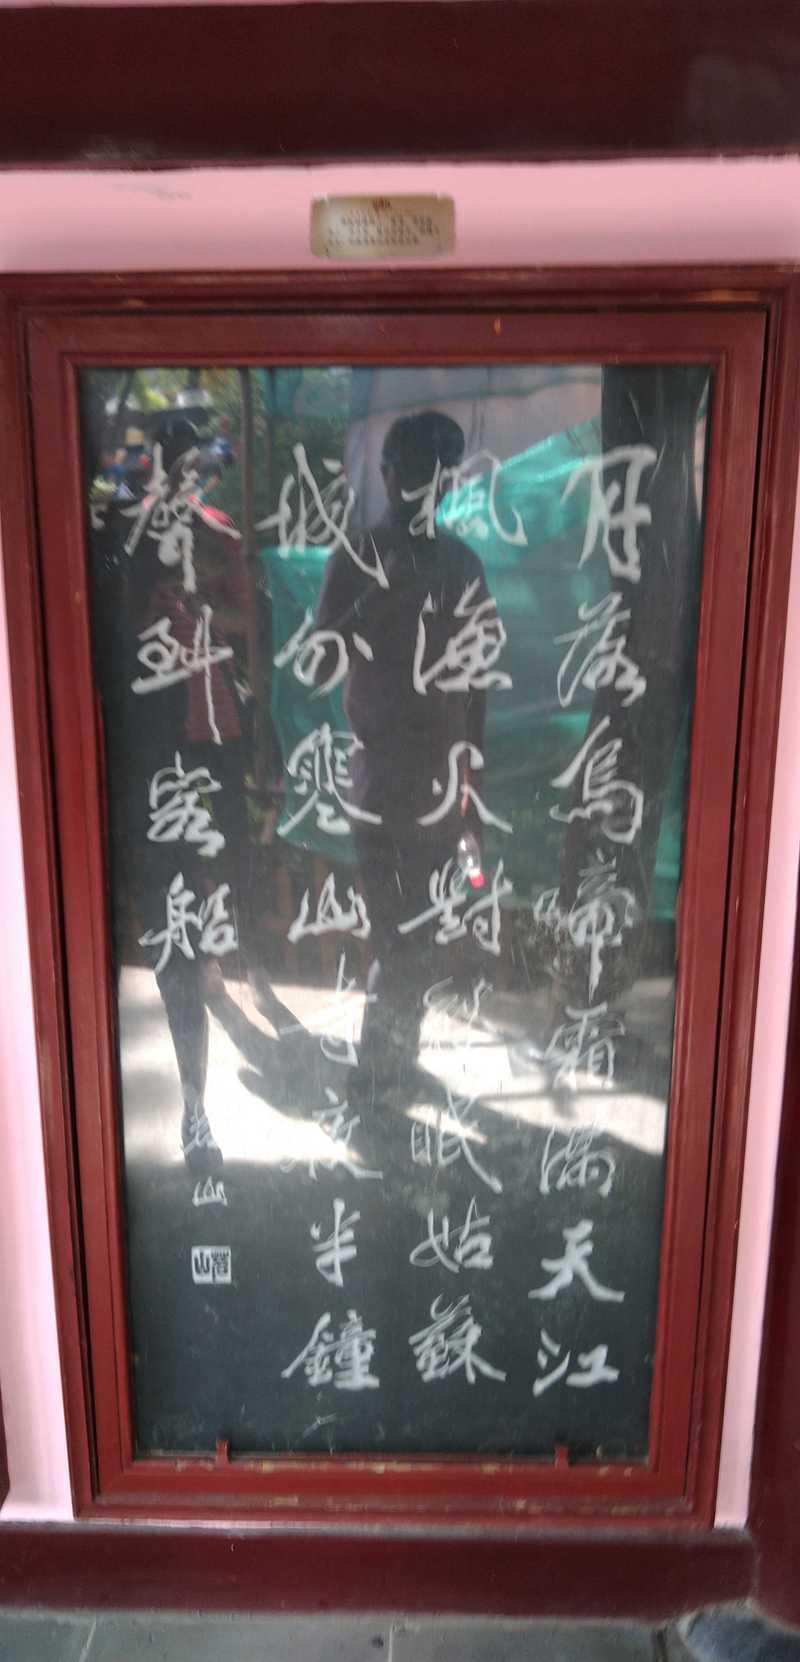 月落烏啼霜滿天江
楓漁火對愁眠姑蘇
城外寒山寺夜半鐘
聲到客船
山